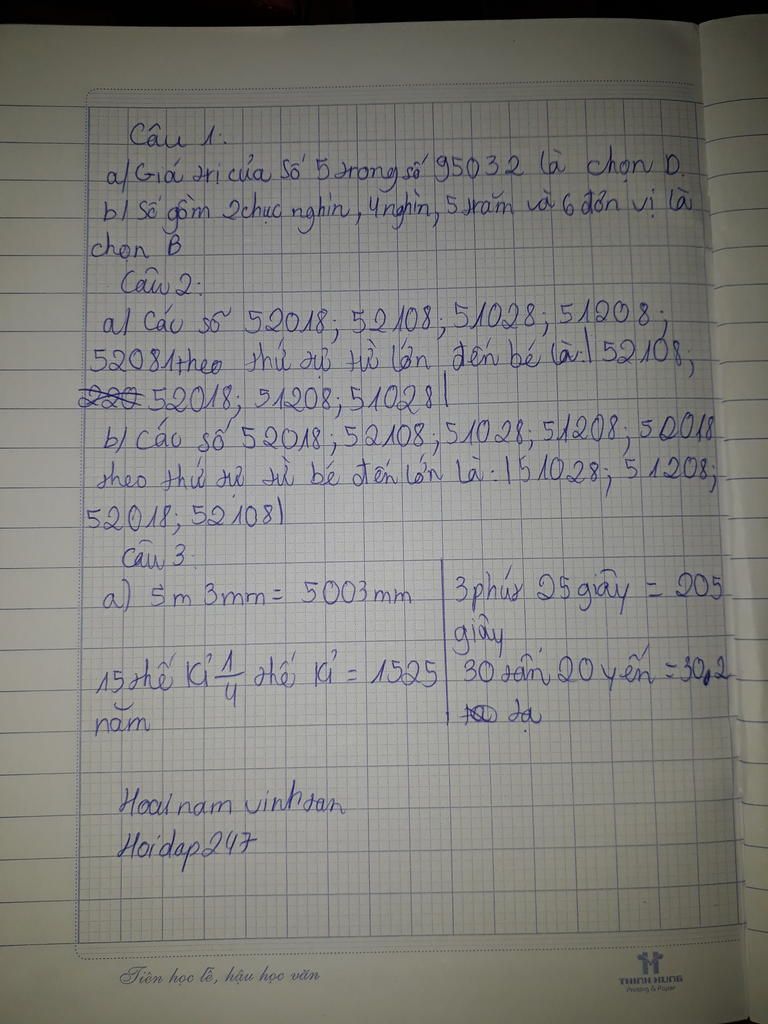 Câu 1:
a) Giá trị của số 5 trong số 95032 là chọn D.
b) Số gồm 2 chục nghìn, 4 nghìn, 5 trăm và 6 đơn vị là
chọn B
Câu 2:
a) Các số 52018; 52108; 51028; 51208;
52081 theo thứ tự từ lớn đến bé là: | 52108;
52018; 51208; 51028 |
b) Các số 52018; 52108; 51028; 51208; 52018
theo thứ tự từ bé đến lớn là: | 51028; 51208;
52018; 52108 |
Câu 3:
a) 5m 3mm = 5003mm
15 thế kỉ 1/4 thế kỉ = 1525
năm
3 phút 25 giây = 205
giây
30 tấn 20 yến = 30,2
tạ
Hoainamvinhtan
Hoidap247
Tiên học lễ, hậu học văn
THINH HUNG
Printing & Paper